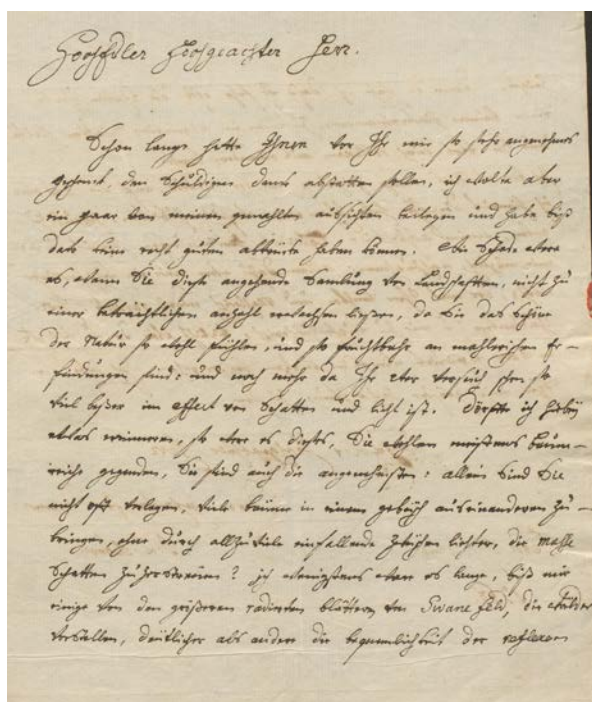 HochEdler Hochgeachter Herr.
Schon lange hätte Ihnen vor Ihr mir so sehr angenehmes
geschenck, den Schuldigen danck abstatten sollen, ich wolte aber
ein paar von meinen gemahlten aussichten beilegen und habe biß
dato keine recht guten abdrücke haben können. Wie Schade wäre
es, wann Sie diese angehende Samlung von Landschafften, nicht zu
einer beträchtlichen anzahl anwachsen liessen, da Sie das Schöne
der Natur so wohl fühlen, und so fruchtbahr an mahlerischen Er-
findungen sind: und noch mehr da Ihr 2ter Versuch schon so
viel besser im effect von Schatten und licht ist. Dörffte ich hiebey
etwas erinneren, so wäre es dieses, Sie wehlen meistens baum-
reiche gegenden, Sie sind auch die angenehmsten: allein Sind Sie
nicht offt verlegen, viele bäume in einem gebüsch auseinanderen zu-
bringen, ohne durch allzuviele einfallende lichter, die masse
Schatten zu zerstöhren? ich wenigstens ware es lange, biß mir
einige von den grösseren radierten blättern von Swanefeld, die wälder
vorstellen, deutlicher als andere die bequemlichkeit der reflexen